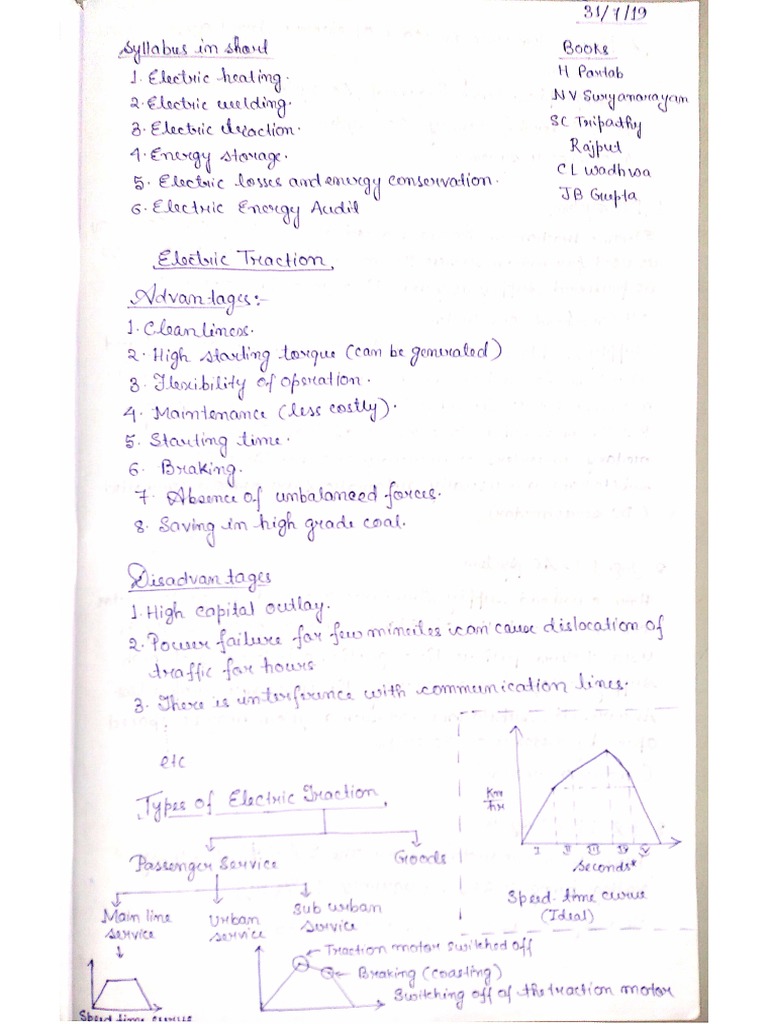 31/7/19
Syllabus in short
1. Electric heating.
2. Electric welding.
3. Electric traction.
4. Energy storage.
5. Electric losses and energy conservation.
6. Electric Energy Audit
Books
H Partab
NV Suryanarayan
SC Tripathy
Rajput
CL Wadhwa
JB Gupta
Electric Traction
Advantages:-
1. Cleanliness.
2. High starting torque (can be generated)
3. Flexibility of operation.
4. Maintenance (less costly).
5. Starting time.
6. Braking.
7. Absence of unbalanced forces.
8. Saving in high grade coal.
Disadvantages
1. High capital outlay.
2. Power failure for few minutes can cause dislocation of
traffic for hours
3. There is interference with communication lines.
etc
Types of Electric Traction
Passenger Service
Goods
Main line
service
Urban
service
Sub urban
service
Speed time curve
Traction motor switched off
Braking (coasting)
Switching off of the traction motor
Km
hr
I II III IV V
Seconds*
Speed-time curve
(Ideal)